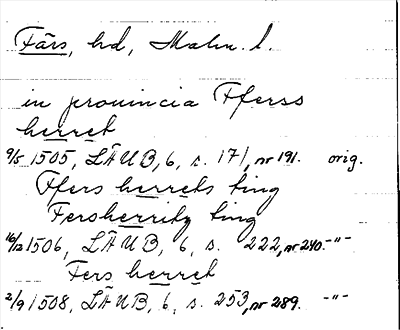 Färs, hd, Malm. l.
in prouincia Fferss
herret
9/5 1505, LÄUB, 6, s. 171, nr 191. orig.
Ffers herrets ting
Fersherritz ting
16/2 1506, LÄUB, 6, s. 222, nr 240. -"-
Fers herret
2/9 1508, LÄUB, 6, s. 253, nr 289. -"-